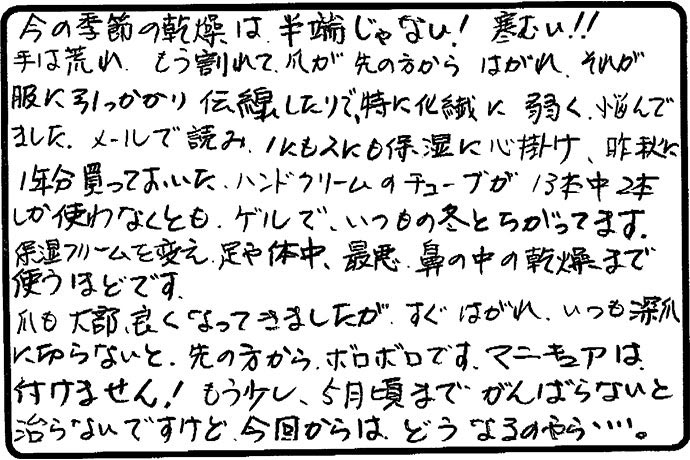 今の季節の乾燥は、半端じゃない！寒むい！！
手は荒れ、もう割れて、爪が先の方からはがれ、それが
服に引っかかり伝線したりで、特に化繊に弱く、悩んで
ました。メールで読み、1にも2にも保湿に心掛け、昨秋に
1年分買っておいた、ハンドクリームのチューブが13本中2本
しか使わなくとも、ゲルで、いつもの冬とちがってます。
保湿クリームを変え、足や体中、最悪、鼻の中の乾燥まで
使うほどです。
爪も大部、良くなってきましたが、すぐはがれ、いつも深爪
に切らないと、先の方から、ボロボロです。マニキュアは、
付けません！もう少し、5月頃までがんばらないと
治らないですけど、今回からは、どうなるのやら…。